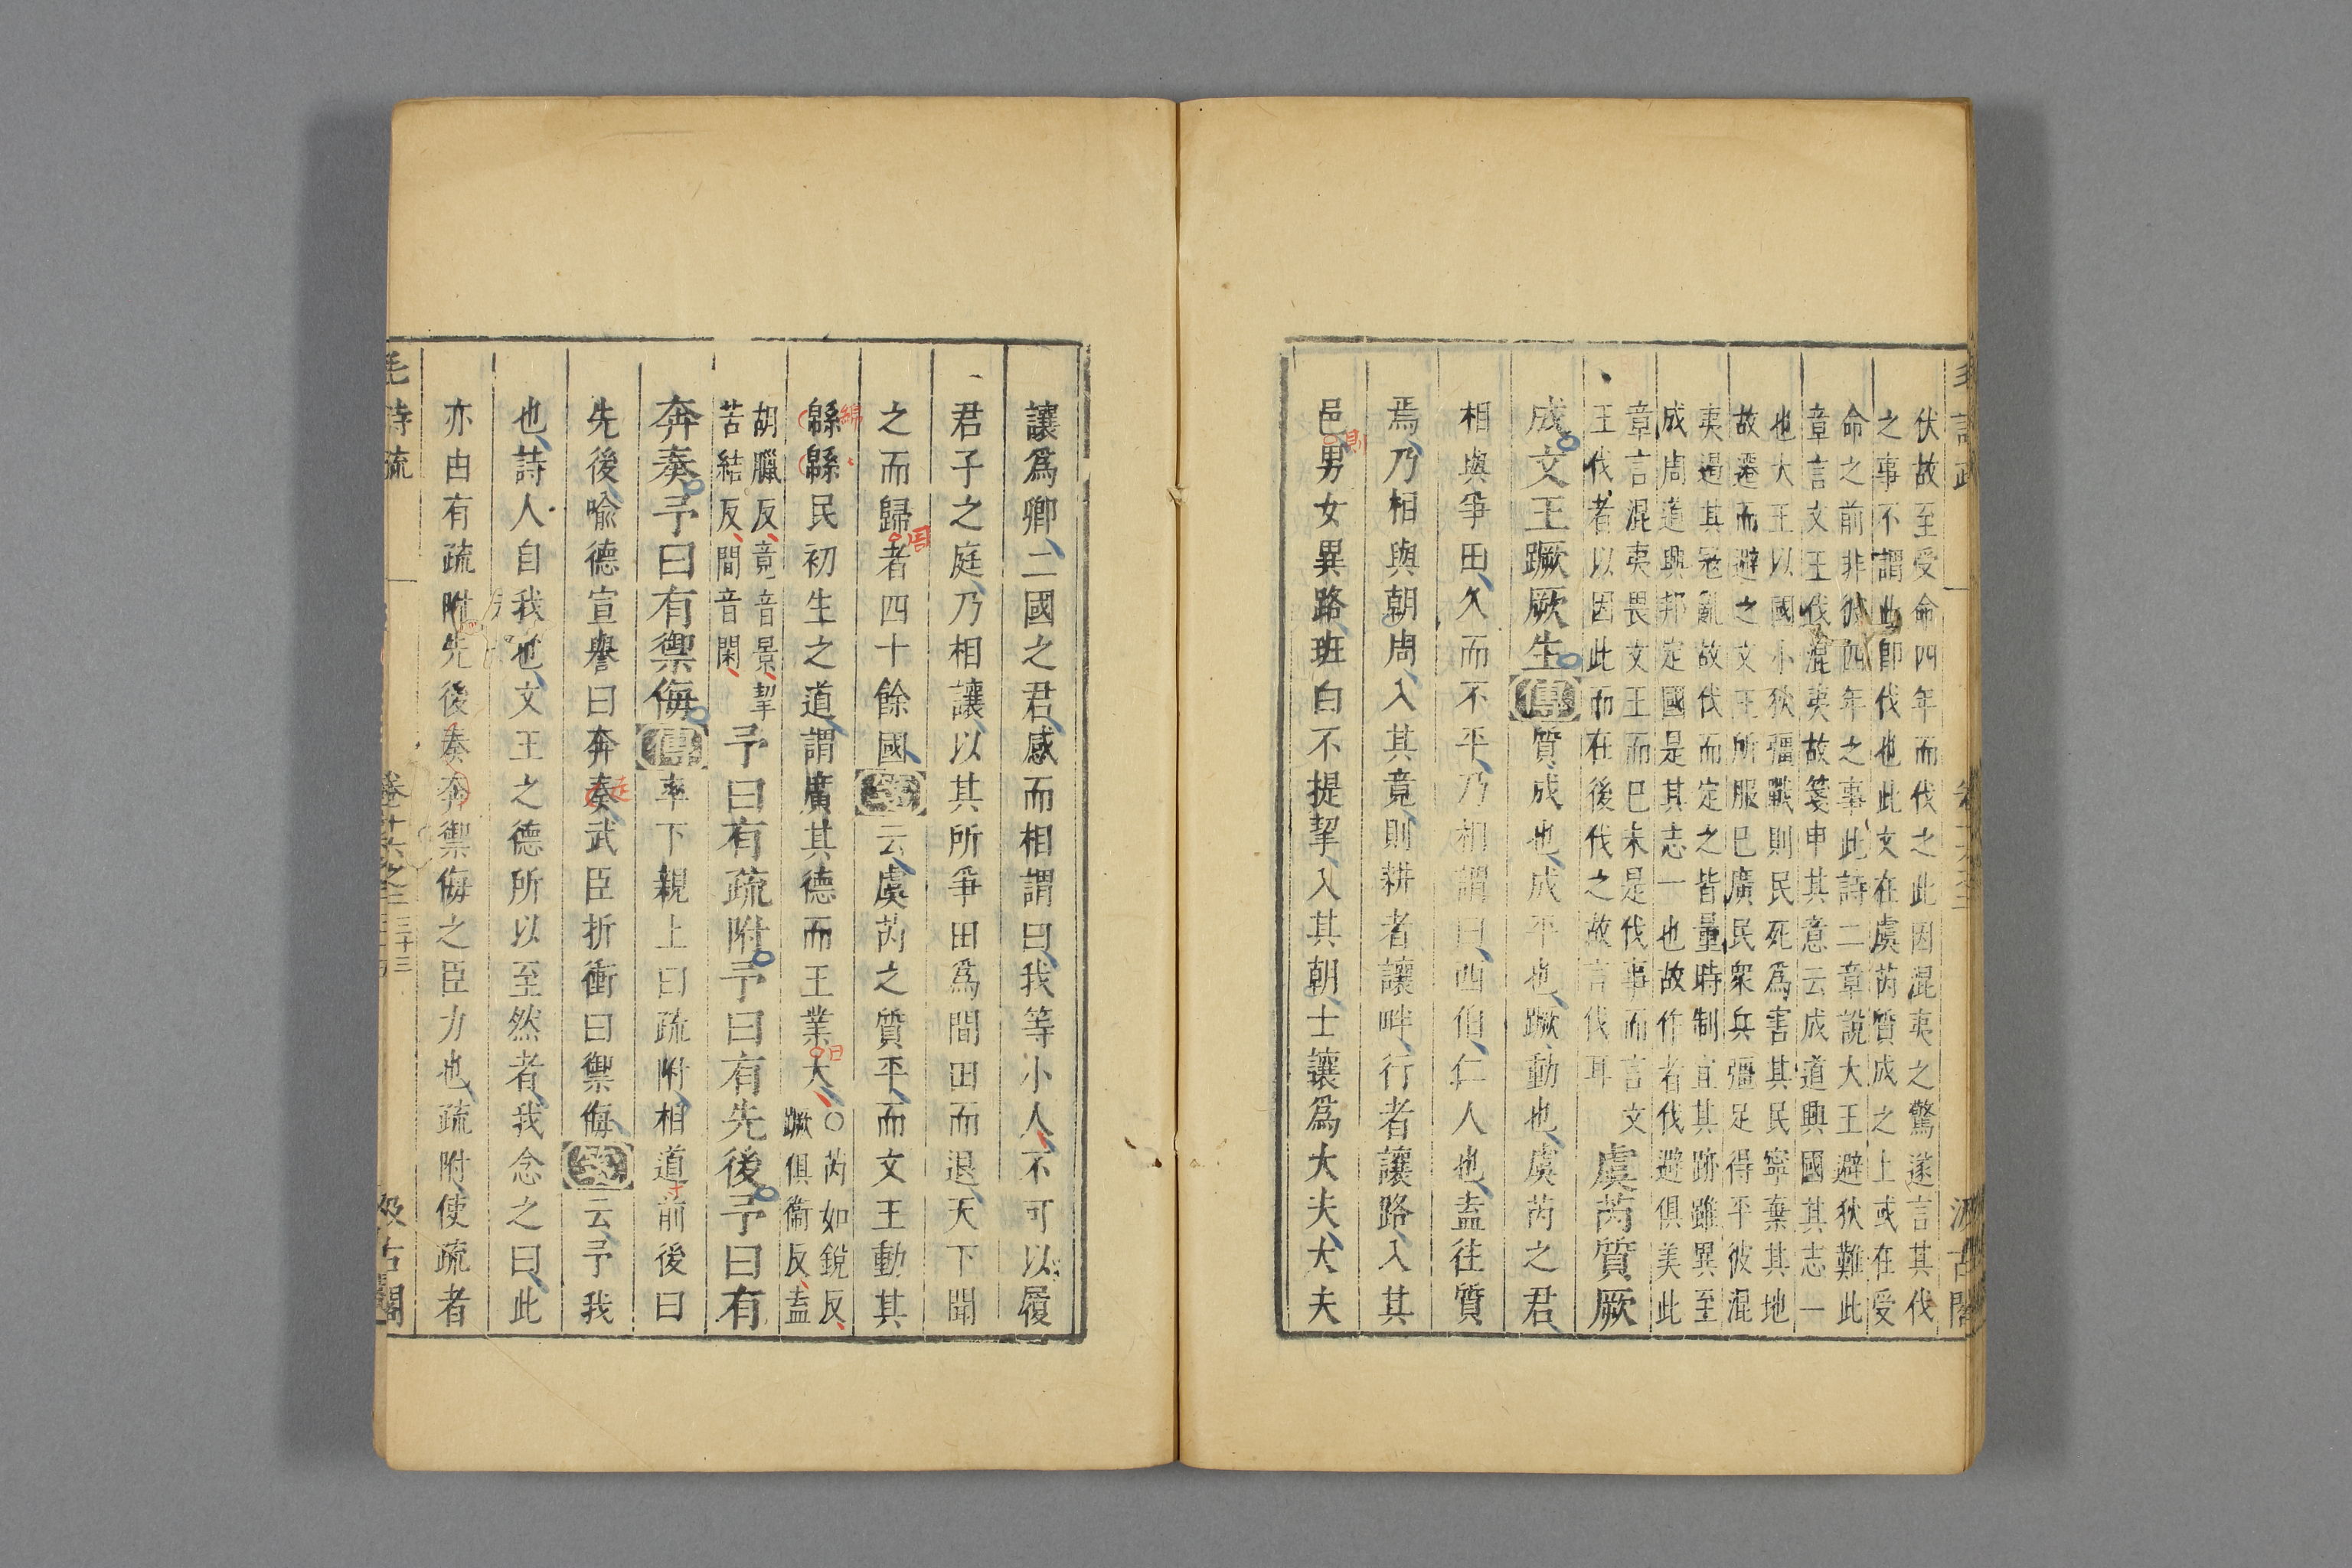 伏故至受命四年而伐之此因混夷之驚遂言其伐
之事不謂此即伐也此文在虞芮質成之上或在受
命之前非彼四年之事此詩二章說大王避狄難此
章言文王伐混夷故箋申其意云成道興國其志一
也大王以國小狄彊戰則民死爲害其民寧棄其地
故遷而避之文王所服巳廣民衆兵彊足得平彼混
夷遏其冦亂故伐而定之皆量時制宜其跡雖異至
成周道興邦定國是其志一也故作者伐避俱美此
章言混夷畏文王而巳未是伐事而言文
王伐者以因此而在後伐之故言伐耳
虞芮質厥
成文王蹶厥生傳質成也成平也蹶動也虞芮之君
相與爭田久而不平乃相謂曰西伯仁人也盍往質
焉乃相與朝周入其竟則耕者讓畔行者讓路入其
邑男女異路班白不提挈入其朝士讓爲大夫大夫
則
讓爲卿二國之君感而相謂曰我等小人不可以履
君子之庭乃相讓以其所爭田爲間田而退天下聞
之而歸者四十餘國箋云虞芮之質平而文王動其
周
緜緜民初生之道謂廣其德而王業大
綿
日
○芮如銳反
蹶俱衞反盍
胡臘反竟音景挈
苦結反間音閑
予曰有疏附予曰有先後予曰有
奔奏予曰有禦侮傳率下親上曰疏附相道前後曰
先後喻德宣譽曰奔奏武臣折衝曰禦侮箋云予我
走
也詩人自我也文王之德所以至然者我念之曰此
亦由有疏附先後奏奔禦侮之臣力也疏附使疏者
毛詩疏
卷十六之二
三十三
汲古閣